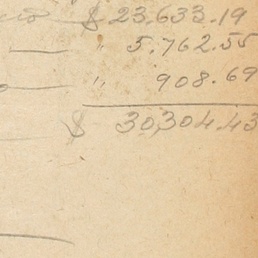 $ 23,633.19
" 5.762.55
" 908.69
$ 30,304.43